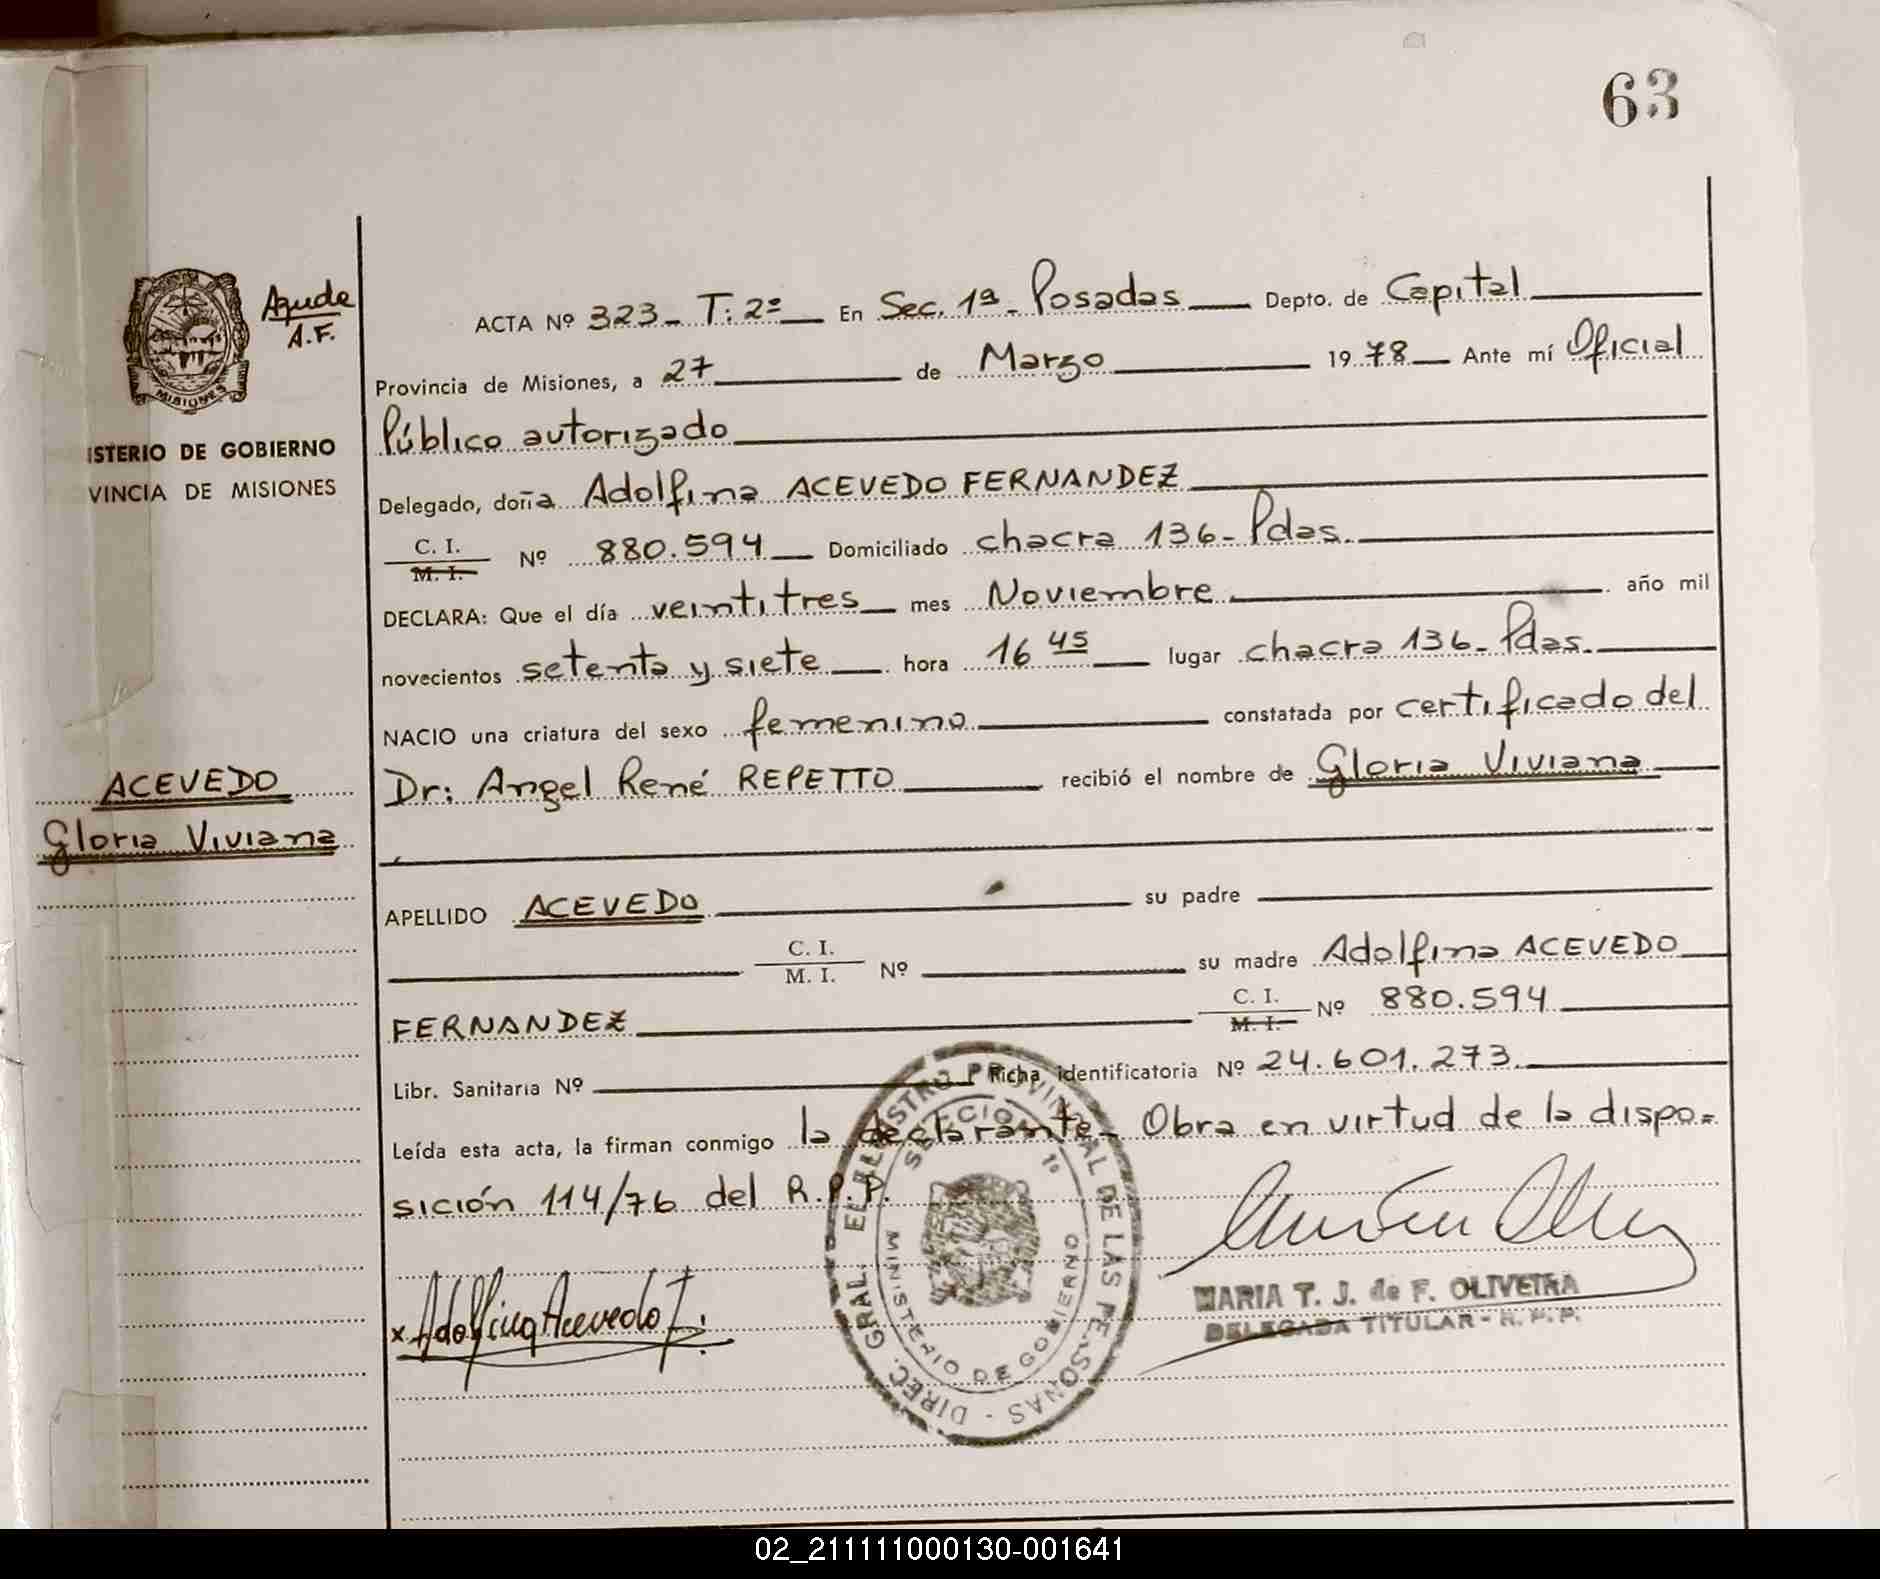 63
Agude
A.F.
MISIONES
ISTERIO DE GOBIERNO
VINCIA DE MISIONES
ACTA Nº 323_ T: 2º En Sec. 1ª_ Posadas Depto. de Capital
Provincia de Misiones, a 27 de Marzo 1978 Ante mí Oficial
Público autorizado
Delegado, doña Adolfina ACEVEDO FERNANDEZ
C. I. / M. I. Nº 880.594 Domiciliado chacra 136_ Pdas.
DECLARA: Que el día veintitres mes Noviembre año mil
novecientos setenta y siete hora 16 45 lugar chacra 136_ Pdas.
NACIO una criatura del sexo femenino constatada por certificado del
Dr: Angel René REPETTO recibió el nombre de Gloria Viviana
ACEVEDO
Gloria Viviana
APELLIDO ACEVEDO su padre
C. I. / M. I. Nº su madre Adolfina ACEVEDO
FERNANDEZ C. I. / M. I. Nº 880.594
Libr. Sanitaria Nº Ficha identificatoria Nº 24.601.273.
Leída esta acta, la firman conmigo la declarante_ Obra en virtud de la dispo=
sición 114/76 del R.P.P.
x Adolfina Acevedo F.
DIREC. GRAL. EL REGISTRO PROVINCIAL DE LAS PERSONAS -
SECCION 1º
MINISTERIO DE GOBIERNO
MARIA T. J. de F. OLIVEIRA
DELEGADA TITULAR - R. P. P.
02_211111000130-001641